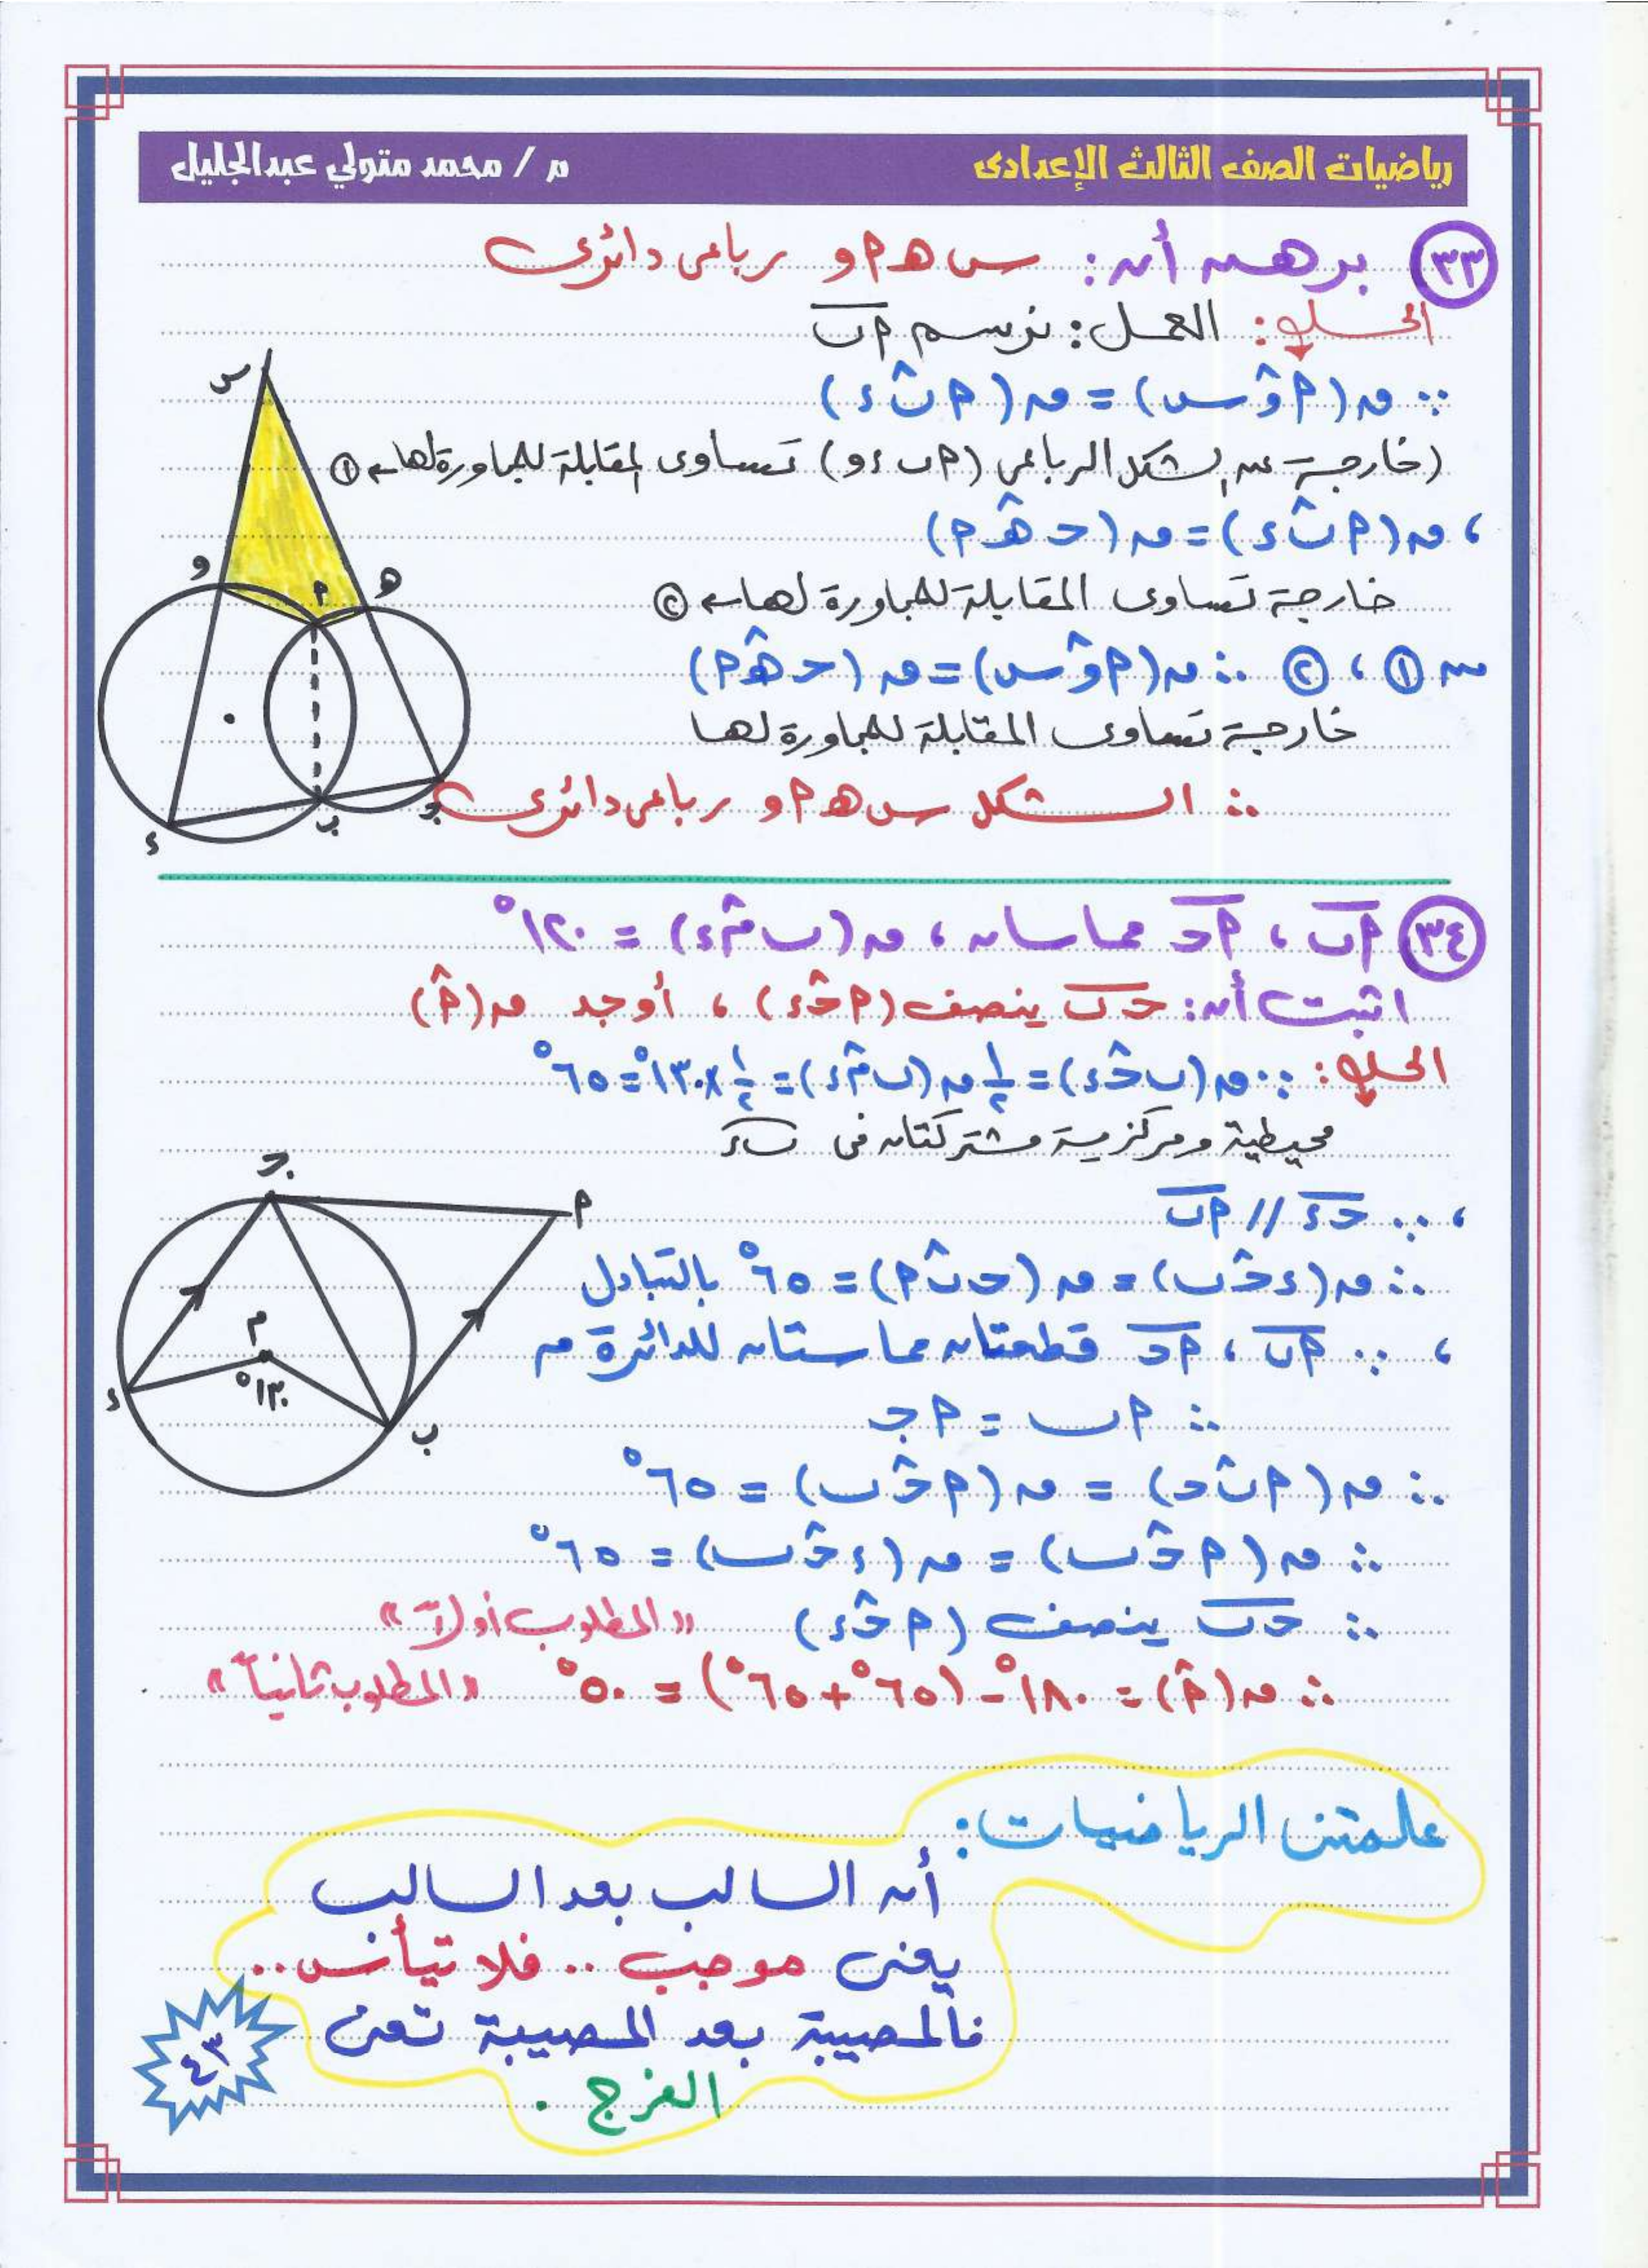 رياضيات الصف الثالث الإعدادى
م / محمد متولي عبدالجليل
٣٣ برهن أن: س هـ أ و رباعى دائرى
الحل: العمل: نرسم أب
∵ ق(أوس) = ق(أبء)
(خارجة عن الشكل الرباعى (أ ب ء و) تساوى المقابلة للمجاورة لها ← ١
، ق(أبء) = ق(حهـأ)
خارجة تساوى المقابلة للمجاورة لها ← ٢
من ١ ، ٢ ∴ ق(أوس) = ق(حهـأ)
خارجة تساوى المقابلة للمجاورة لها
∴ الشكل س هـ أ و رباعى دائرى
س
و
أ
هـ
ء
ب
جـ
٣٤ أب ، أحـ مماسان ، ق(بمء) = ١٢٠°
اثبت أن: حـب ينصف (أحـء) ، أوجد ق(أ)
الحل: ∵ ق(بحـء) = ١/٢ ق(بمء) = ١/٢ × ١٣٠° = ٦٥°
محيطية ومركزية مشتركتان فى بء
، ∵ حـء // أب
∴ ق(ءحـب) = ق(حـبأ) = ٦٥° بالتبادل
، ∵ أب ، أحـ قطعتان مماستان للدائرة م
∴ أب = أجـ
∴ ق(أبحـ) = ق(أحـب) = ٦٥°
∴ ق(أحـب) = ق(ءحـب) = ٦٥°
∴ حـب ينصف (أحـء) «المطلوب أولاً»
∴ ق(أ) = ١٨٠° - (٦٥° + ٦٥°) = ٥٠° «المطلوب ثانياً»
جـ
أ
م
١٣٠°
ء
ب
علمتنى الرياضيات:
أن السالب بعد السالب
يعنى موجب .. فلا تيأس ..
فالمصيبة بعد المصيبة تعنى
الفرج .
٤٣